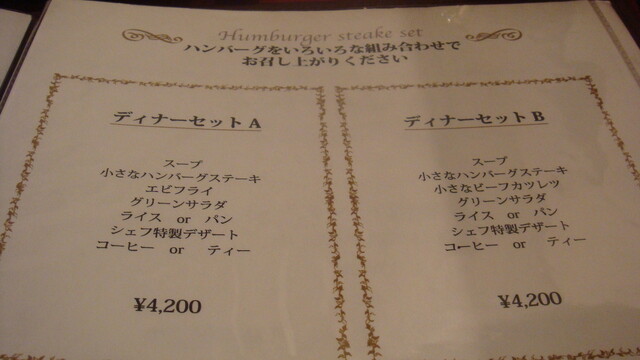 Humburger steake set
ハンバーグをいろいろな組み合わせで
お召し上がりください
ディナーセット A
スープ
小さなハンバーグステーキ
エビフライ
グリーンサラダ
ライス or パン
シェフ特製デザート
コーヒー or ティー
¥4,200
ディナーセット B
スープ
小さなハンバーグステーキ
小さなビーフカツレツ
グリーンサラダ
ライス or パン
シェフ特製デザート
コーヒー or ティー
¥4,200